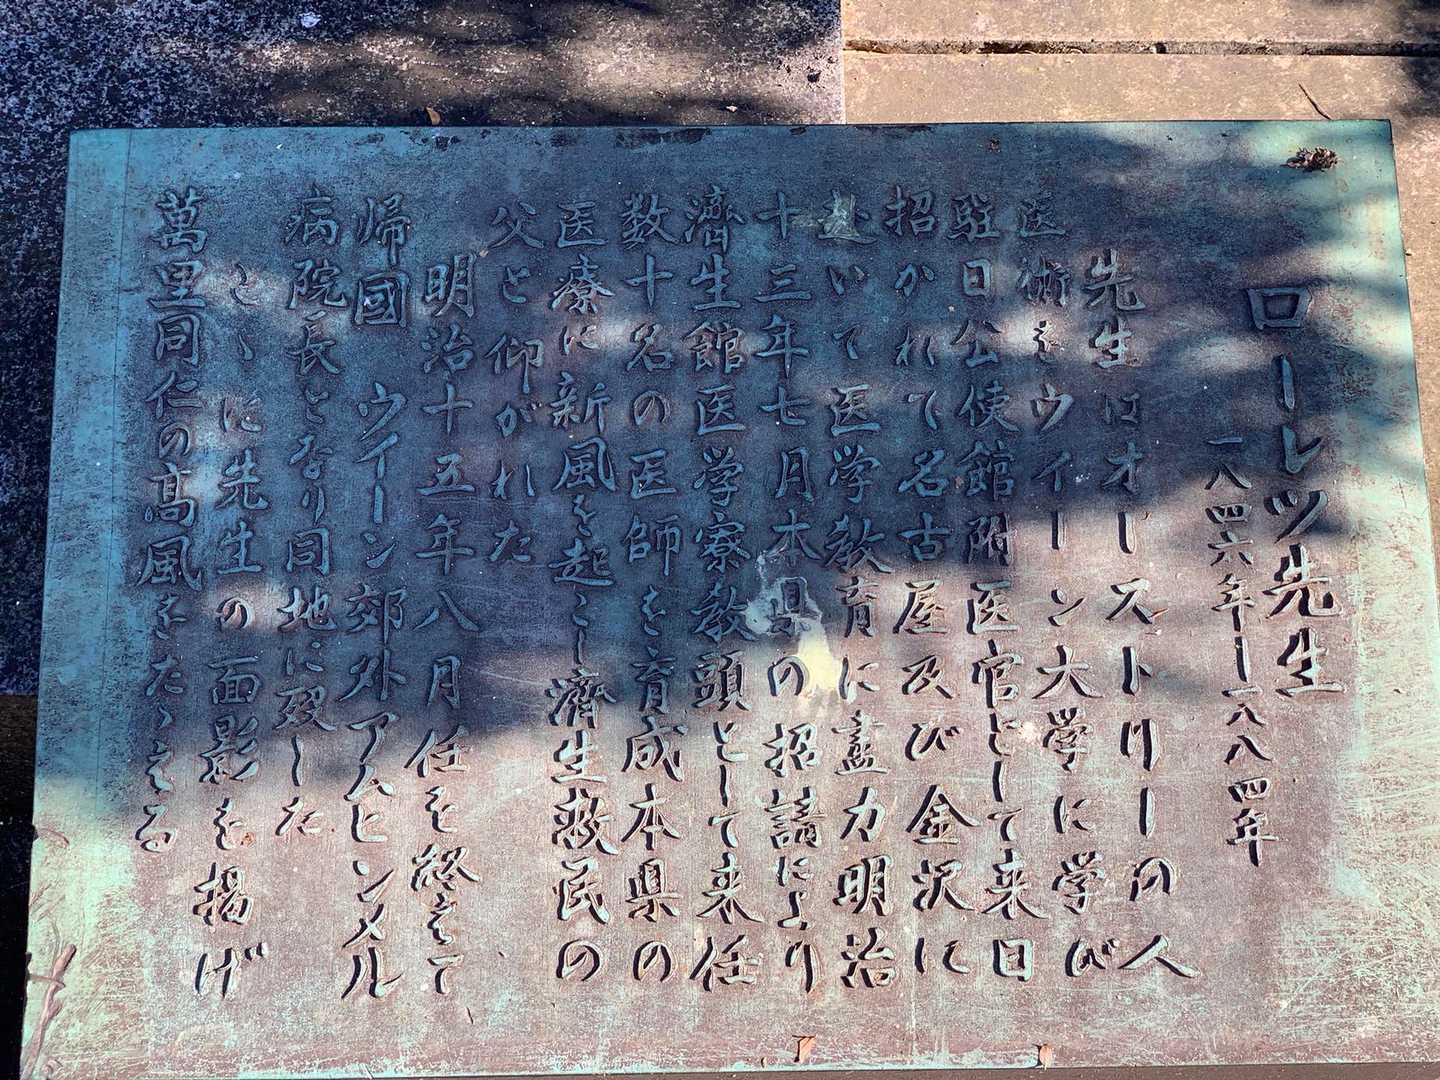 ローレツ先生
一八四六年ー一八八四年
先生はオーストリーの人
医術をウイーン大学に学び
駐日公使館附医官として来日
招かれて名古屋及び金沢に
赴いて医学教育に盡力明治
十三年七月本県の招請により
濟生館医学寮教頭として来任
数十名の医師を育成本県の
医療に新風を起こし濟生救民の
父と仰がれた
明治十五年八月任を終えて
帰國 ウイーン郊外アムヒンメル
病院長となり同地に歿した
こゝに先生の面影を掲げ
萬里同仁の高風をたゝえる